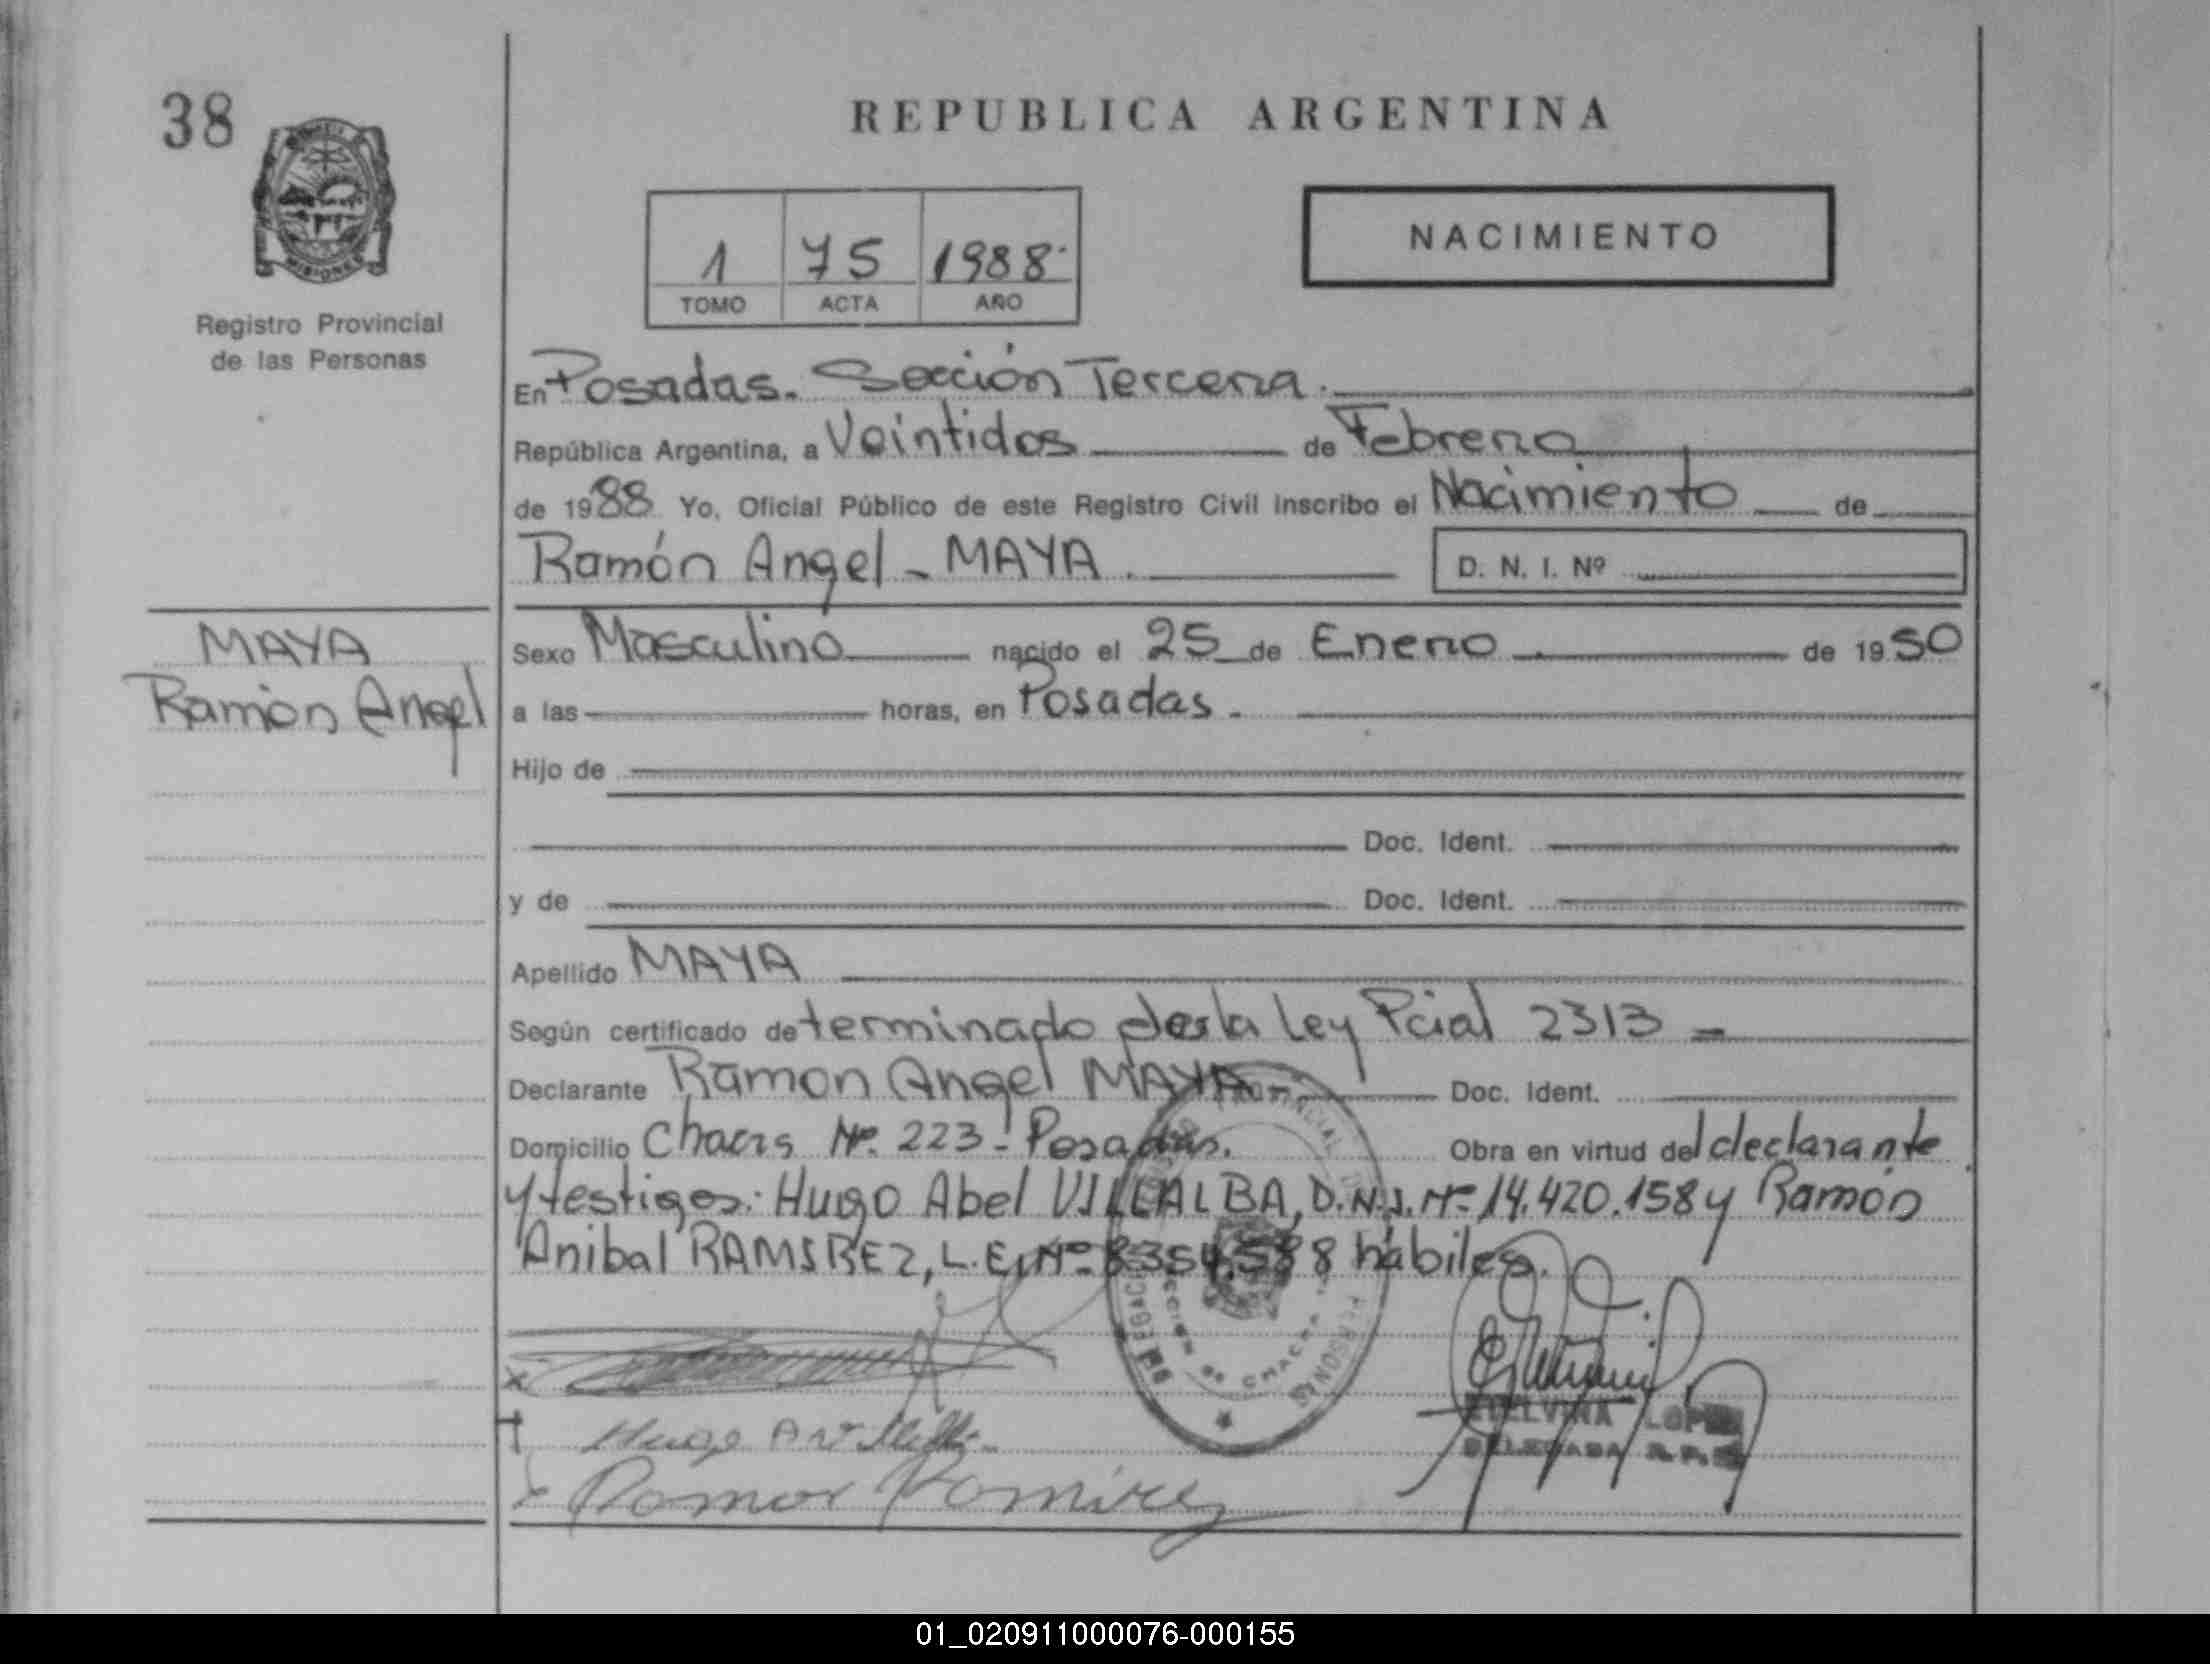 38
REPUBLICA ARGENTINA
MISIONES
Registro Provincial
de las Personas
1 75 1988
TOMO ACTA AÑO
NACIMIENTO
En Posadas. Sección Tercera.
República Argentina, a Veintidos de Febrero
de 1988 Yo, Oficial Público de este Registro Civil inscribo el Nacimiento de
Ramón Angel - MAYA. D. N. I. Nº
MAYA
Ramón Angel
Sexo Masculino nacido el 25 de Enero de 1950
a las horas, en Posadas.
Hijo de
Doc. Ident.
y de Doc. Ident.
Apellido MAYA
Según certificado determinado de la Ley Pcial 2313
Declarante Ramon Angel MAYA Doc. Ident.
Domicilio Chacra Nº 223 - Posadas. Obra en virtud del declarante
y testigos: Hugo Abel VILLALBA, D.N.I. Nº 14.420.158 y Ramón
Anibal RAMIREZ, L.E. Nº 8354.588 habiles.
Hugo A
Ramon Ramirez
LOPEZ
DELEGADA
01_020911000076-000155